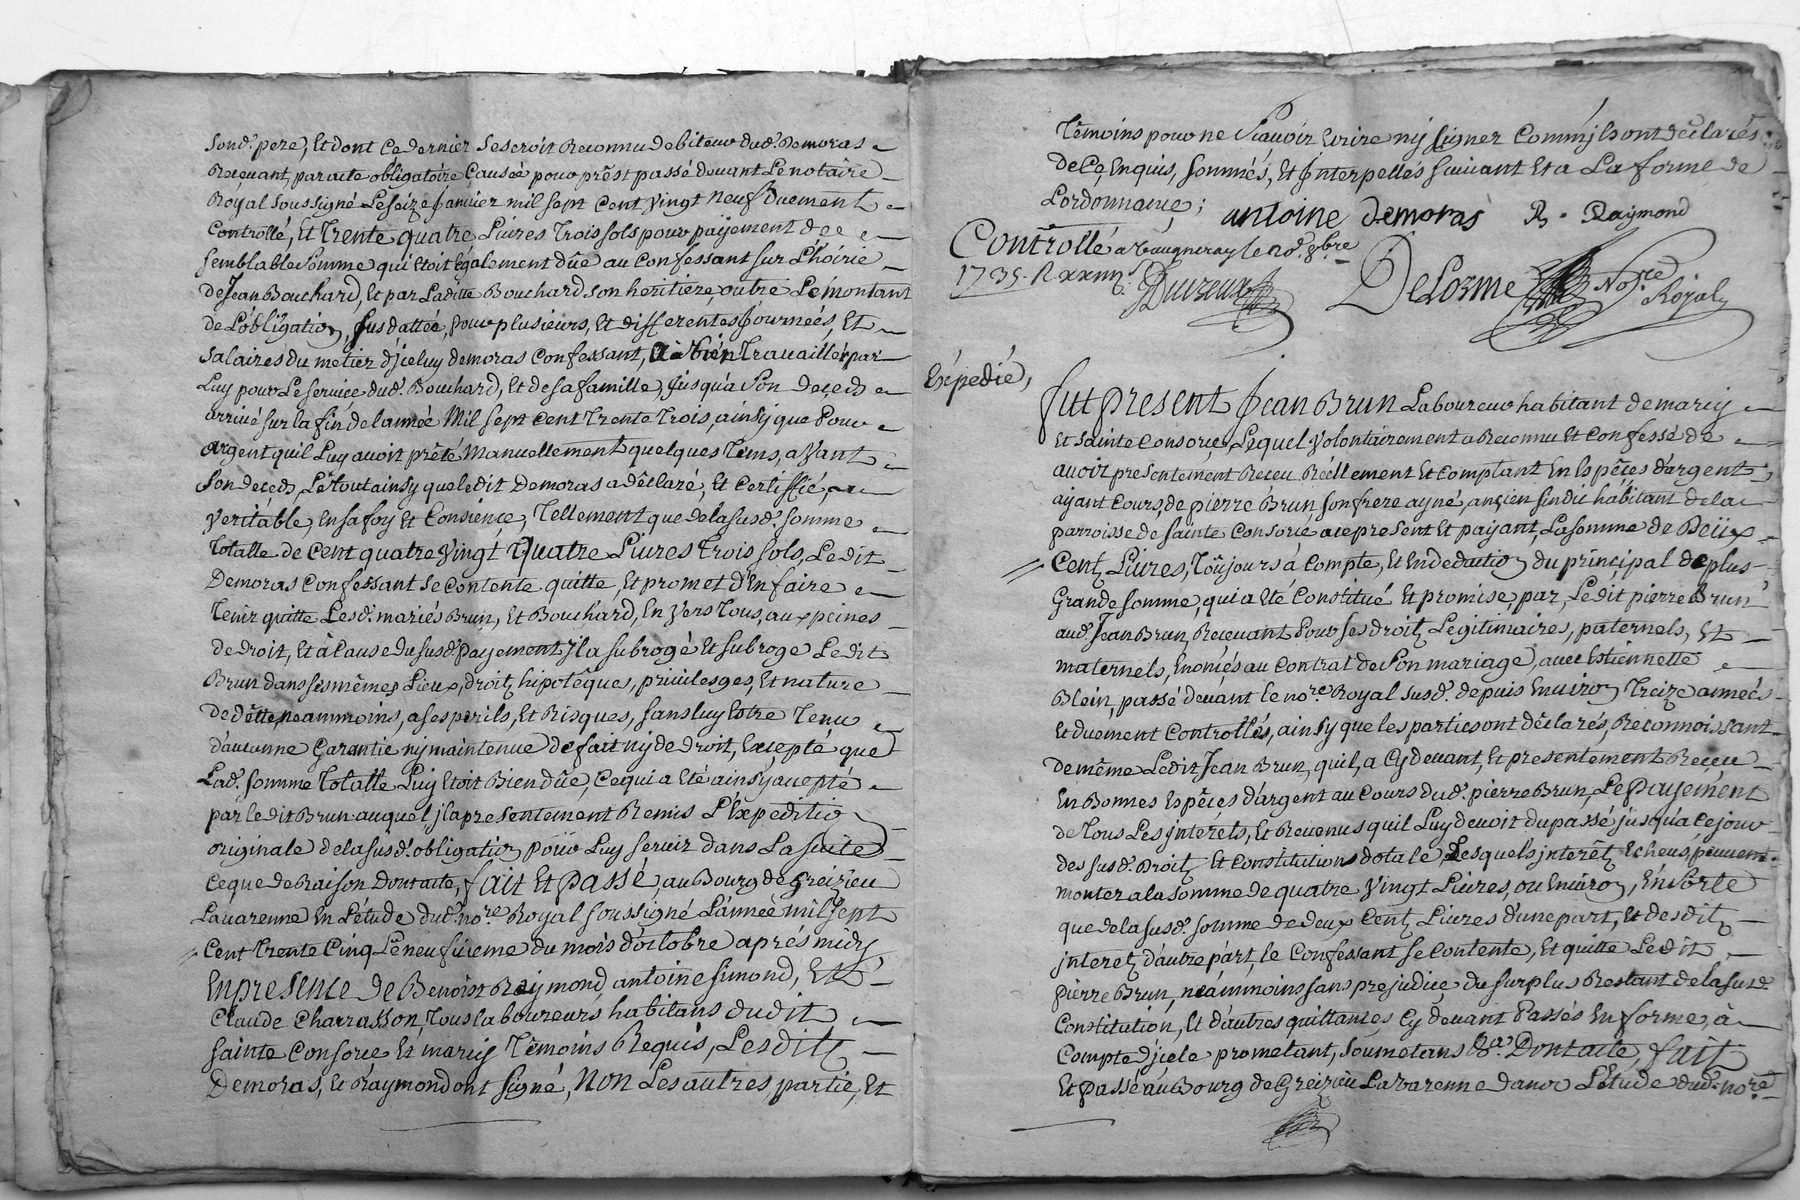 sond. pere, Et dont Ce dernier Seseroit Reconnu debiteur dud. Demoras
Recevant, par acte obligatoire Causée pour prêst passé devant Le notaire
Royal soussigné Le Seize Janvier mil sept Cent vingt neuf Duement
Controllé, Et Trente quatre Livres Trois sols pour payement de
semblable Somme qui Etoit Egalement dûe au Confessant sur L'hoirie
de Jean Bouchard, Et par Laditte Bouchard son heritiere, outre Le montant
de L'obligation, sus dattée, pour plusieurs, Et differentes Journées, Et
Salaires du metier d'jceluy demoras Confessant, Travaillé par
Luy pour Le service dud. Bouchard, Et de sa famille, Jusqu'a Son deceds
arrivé sur la fin de lannée Mil sept Cent Trente Trois, ainsy que Pour
argent quil Luy avoit prêté Manuellement quelques Tems, avant
Son deceds, Le tout ainsy que ledit Demoras a déclaré, Et Certiffié
Veritable, En sa foy Et Consience, Tellement que de la susd. somme
Totalle de Cent quatre Vingt Quatre Livres Trois sols, Le dit
Demoras Confessant se Contente quitte, Et promet d'En faire
Tenir quitte Lesd. mariés Brun, Et Bouchard, En vers Tous, aux peines
de droit, Et à Cause du susd. Payement Jl a subrogé Et subroge Le dit
Brun dans ses mêmes Lieux, droits hipotêques, privileges, Et nature
de dêtte, neammoins, a ses perils, Et Risques, sans luy Estre Tenu
d'aucunne Garantie ny maintenue de fait ny de droit, Excepté que
Lad. somme Totalle Luy Etoit Bien dûe, Ce qui a Eté ainsy accepté
par le dit Brun auquel jl a presentement Remis L'Expedition
originale de la susd. obligation pour Luy servir dans La suite
Ce que de Raison Dont acte, fait Et passé, au Bourg de Greizieu
Lavarenne En L'étude dud. nore. Royal soussigné L'année mil sept
Cent Trente Cinq Le neufvieme du mois d'octobre aprés midy
En presence de Benoist Raymond, antoine simond, Et
Claude Charrasson, Tous laboureurs habitans dudit
sainte Consorce Et marcy Têmoins Requis, Lesdits
Demoras, Et Raymond ont signé, Non Les autres, partie, Et
Têmoins pour ne Scavoir Ecrire ny signer Comm'jls ont déclarés
de Ce, Enquis, sommés, Et Jnterpellés suivant Et a La forme de
Lordonnance;
antoine demoras B. Raymond
Controllé a Vaugneray le 20e. 8bre
1735. R
DeLorme Nore. Royal
Expedié,
fut present Jean Brun Laboureur habitant de marcy
Et Sainte Consorce, Lequel Volontairement a Reconnu Et Confessé de
avoir presentement Receu Réellement Et Comptant En Espêces d'argent
ayant Cours, de pierre Brun son frere ayné, ancien sindic habitant de la
parroisse de Sainte Consorce a ce present Et payant, La somme de Deüx
Cents Livres, Toujours à Compte, Et En deduction du principal de plus
Grande somme, qui a Eté Constitué Et promise, par, Le dit pierre Brun
aud. Jean Brun, Recevant Pour ses droits Legitimaires, paternels, Et
maternels, Enoncés au Contrat de Son mariage, avec Estiennette
Blein, passé devant le nore. Royal susd. depuis Environ Treize années
Et duement Controllés, ainsy que les parties ont déclarés, Reconnoissant
de même Ledit Jean Brun, quil, a Cy devant, Et presentement Receu
En Bonnes Espêces d'argent au Cours dud. pierre Brun, Le Payement
de Tous Les Jntérêts, Et Revenus quil Luy devoit du passé jusqu'a Ce jour
des susd. Droits Et Constitutions dotale, Lesquels jnterêts Echeus, peuvent
monter a la somme de quatre Vingt Livres, ou Environ, En Sorte
que de la susd. somme de deux Cents Livres d'une part, Et desdits
jnterets d'autre part, le Confessant se Contente, Et quitte Le dit
pierre Brun, neammoins sans prejudice du surplus Restant de la susd.
Constitution, Et d'autres quittances Cy devant Passés En forme, à
Compte d'jcele prometant, soumetans &a. Dont acte, fait
Et Passé au Bourg de Greizieu Lavarenne dans L'Etude dud. nore.